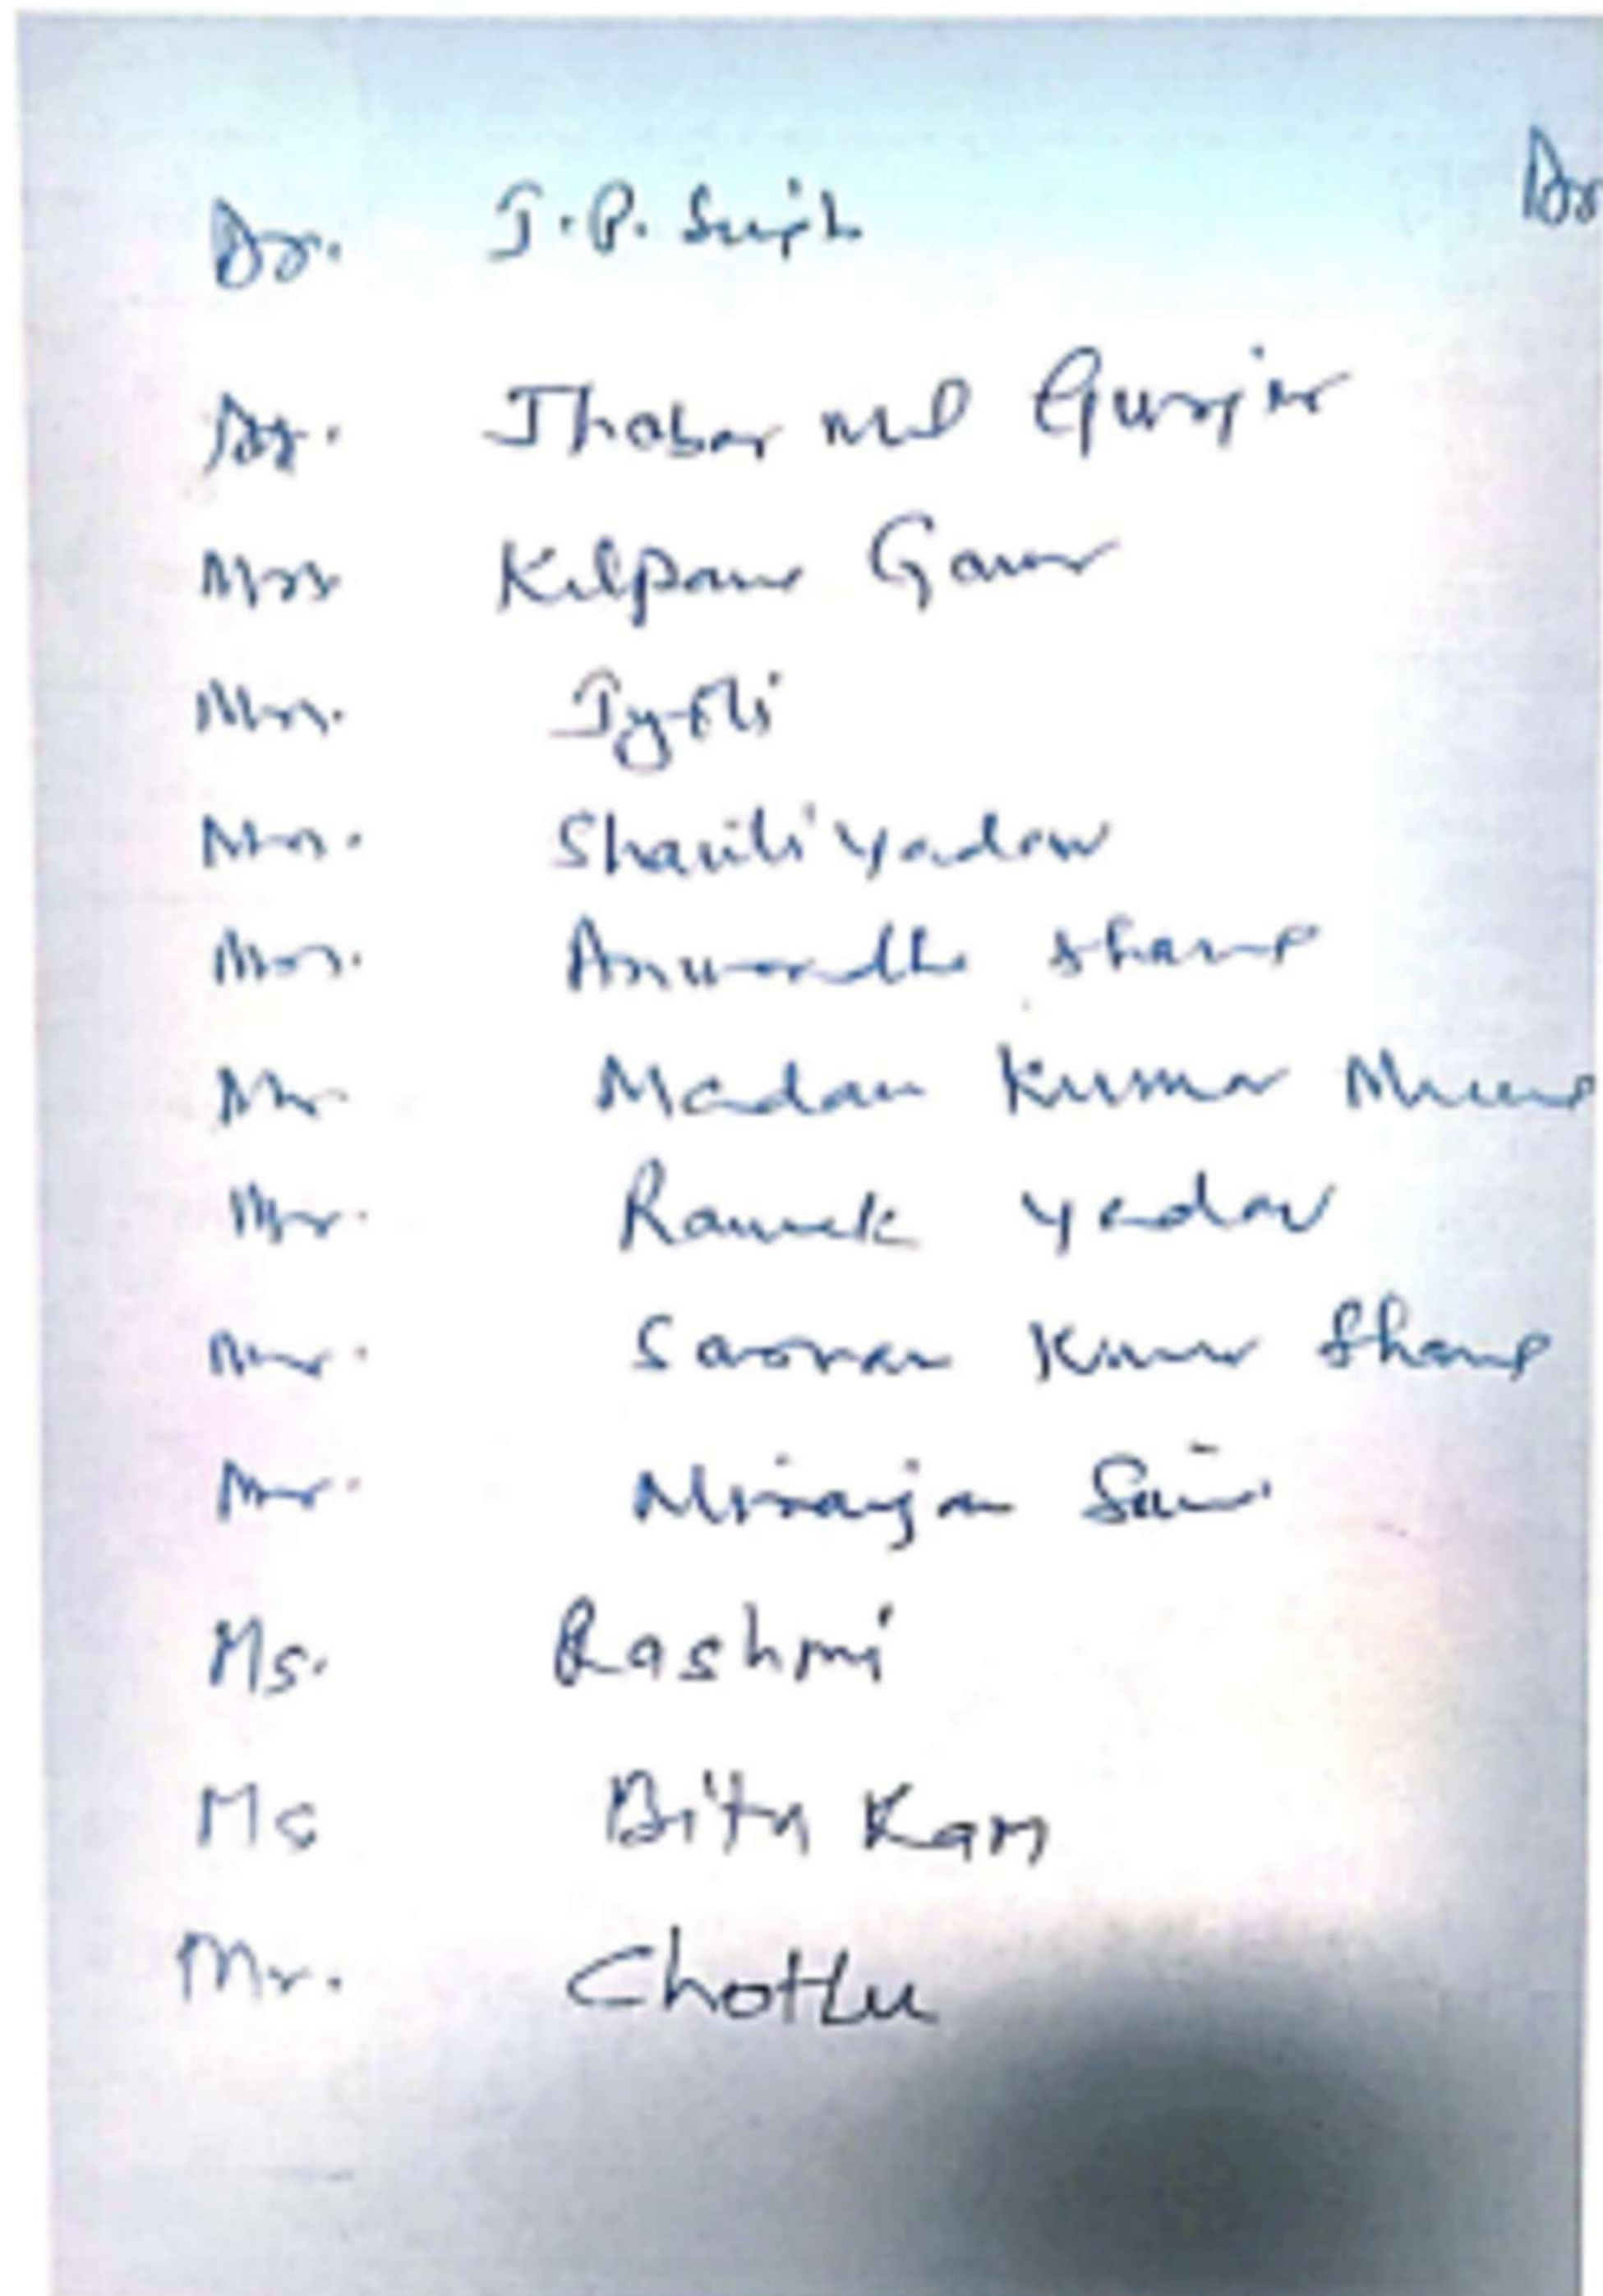 Dr. J.P. Singh
Dr
Dr. Jhabar mal Gurjar
Mrs Kalpana Gaur
Mrs. Jyoti
Mrs. Shaili Yadav
Mrs. Anuradha Sharma
Mr Madan Kumar Meena
Mr. Yadav
Mr. Sawan Kumar Sharma
Mr. Niranjan Saini
Ms. Rashmi
Ms Kaur
Mr. Chottu